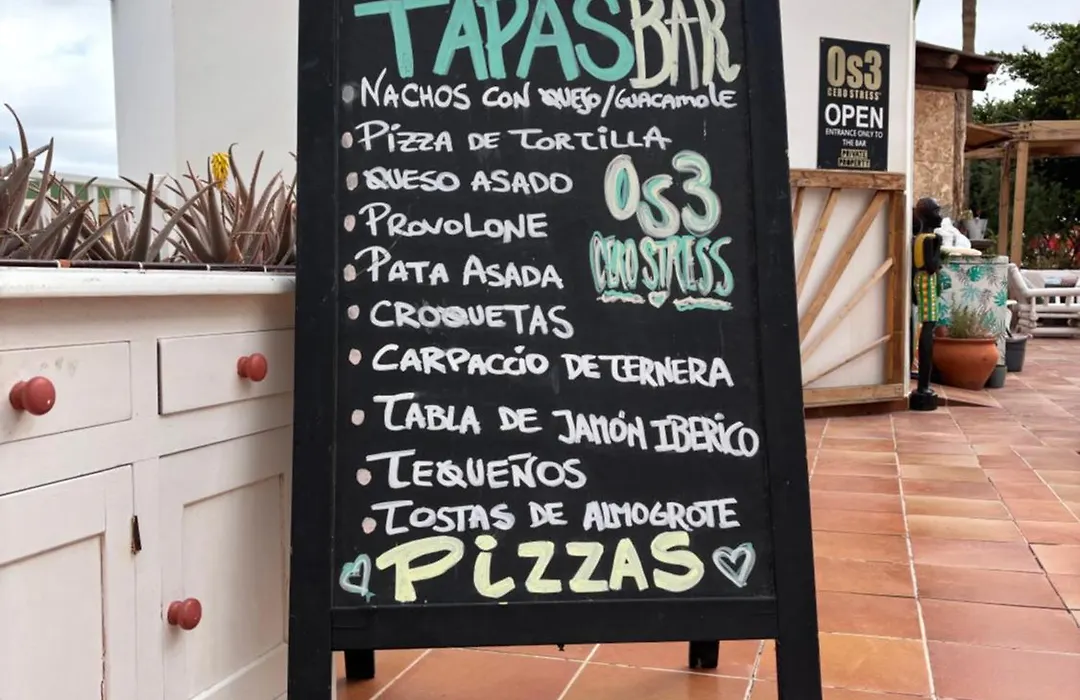 TAPAS BAR
NACHOS CON QUEJO/GUACAMOLE
PIZZA DE TORTILLA
QUESO ASADO
PROVOLONE
PATA ASADA
CROQUETAS
CARPACCIO DE TERNERA
TABLA DE JAMÓN IBERICO
TEQUEÑOS
TOSTAS DE ALMOGROTE
PIZZAS
Os3
CERO STRESS
Os3
CERO STRESS
OPEN
ENTRANCE ONLY TO
THE BAR
PRIVATE
PROPERTY